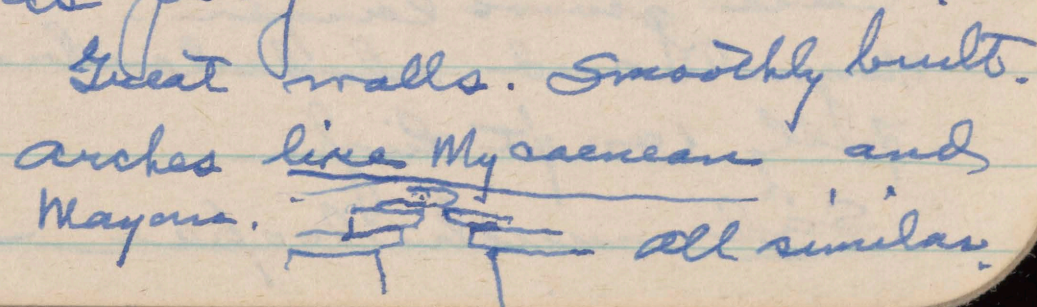 Great walls. Smoothly built.
arches like Mycaenean and
Mayan. All similar.